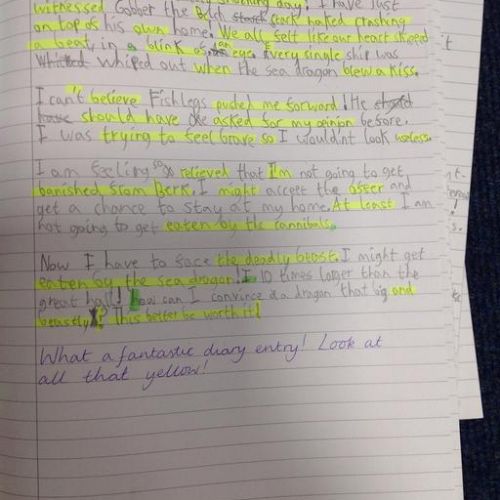 day! I have just
witnessed Gobber the Belch stark naked crashing
on top of his own home. We all felt like our heart skipped
a beat, in a blink of an eye. Every single ship was
whiped out when the sea dragon blew a kiss.
I can't believe Fishlegs pushed me forward! He should
have should have asked for my opinion before.
I was trying to feel brave so I wouldn't look useless.
I am feeling so relieved that I'm not going to get
banished from Berk. I might accept the offer and
get a chance to stay at my home. At least I am
not going to get eaten by the cannibals.
Now I have to face the deadly beast. I might get
eaten by the sea dragon! 10 times larger than the
great hall! How can I convince a dragon that big and
beastly? This better be worth it!
What a fantastic diary entry! Look at
all that yellow!